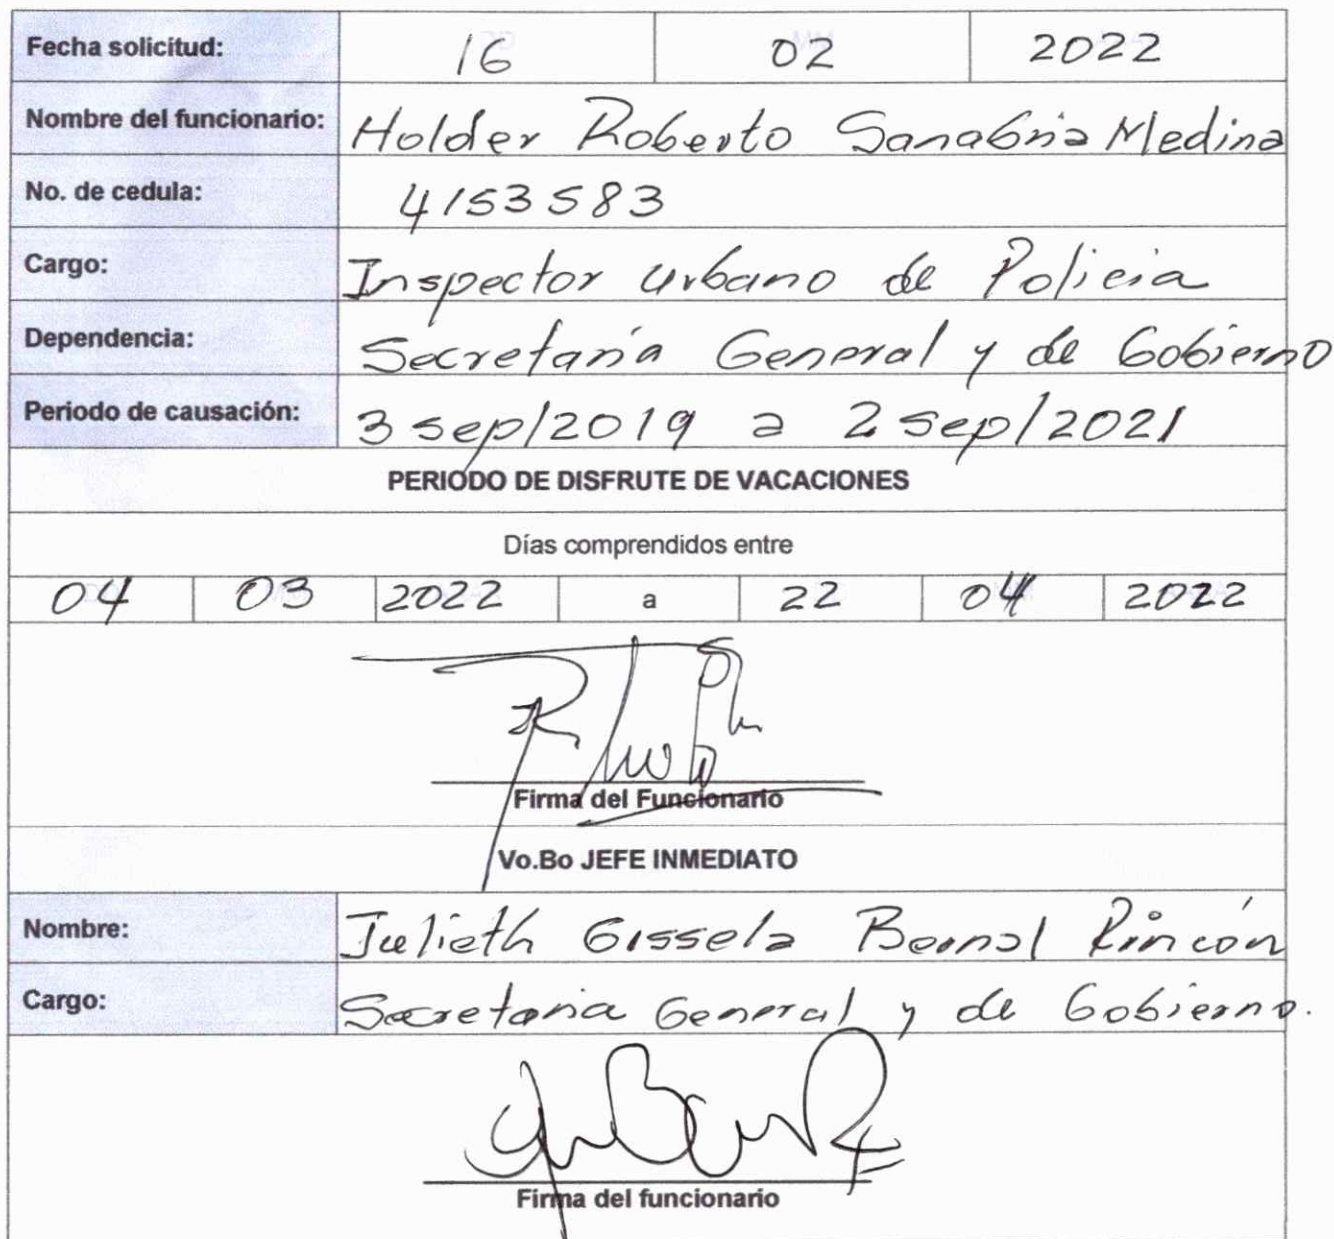 Fecha solicitud: 16 02 2022
Nombre del funcionario: Holder Roberto Sanabria Medina
No. de cedula: 4153583
Cargo: Inspector Urbano de Policia
Dependencia: Secretaría General y de Gobierno
Periodo de causación: 3 sep/2019 a 2 sep/2021
PERIODO DE DISFRUTE DE VACACIONES
Días comprendidos entre
04 03 2022 a 22 04 2022
Firma del Funcionario
Vo.Bo JEFE INMEDIATO
Nombre: Julieth Gissela Bernal Rincón
Cargo: Secretaria General y de Gobierno.
Firma del funcionario